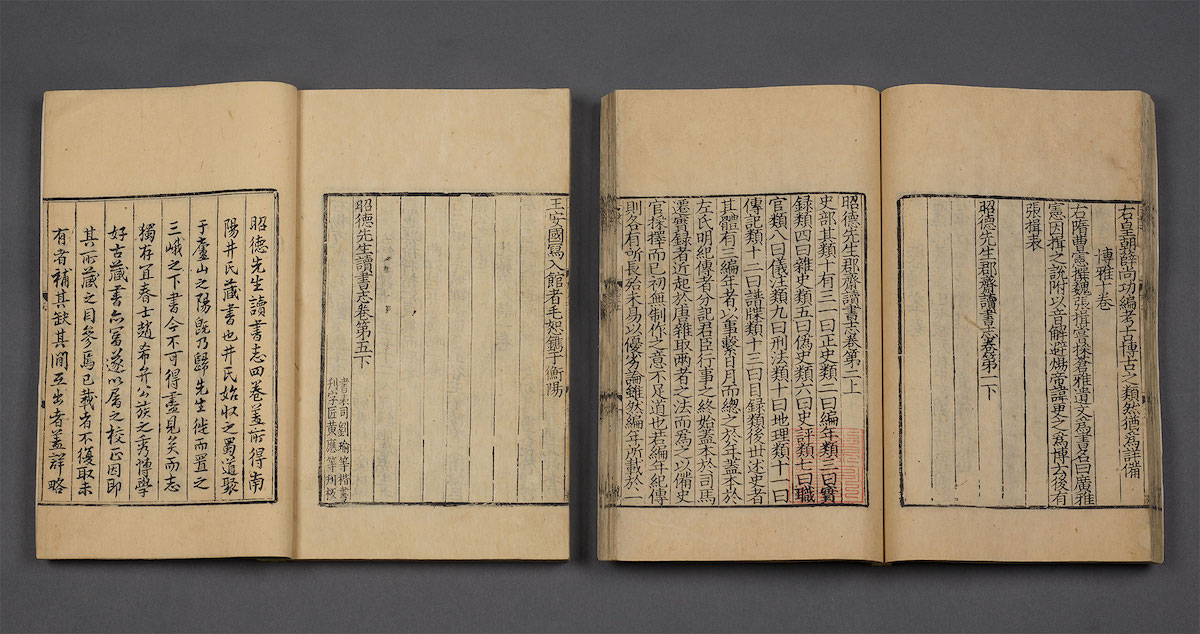 右皇朝薛尚功編考古博古之類然猶為詳備
博雅十卷
右隋曹憲撰魏張揖嘗採蒼雅遺文為書名曰廣雅
憲因揖之說附以音解避煬帝諱更之為博云後有
張揖表
昭德先生郡齋讀書志卷第一下
昭德先生郡齋讀書志卷第二上
史部其類十有三一曰正史類二曰編年類三曰實
録類四曰雜史類五曰偽史類六曰史評類七曰職
官類八曰儀注類九曰刑法類十曰地理類十一曰
傳記類十二曰譜牒類十三曰目録類後世述史者
其體有三編年者以事繫日月而總之於年蓋本於
左氏明紀傳者分記君臣行事之終始蓋本於司馬
遷實録者近起於唐雜取兩者之法而為之以備史
官採擇而已初無制作之意不足道也若編年紀傳
則各有所長殆未易以優劣論雖然編年所載於一
王安國寫入館者毛恕鐫于衡陽
昭德先生讀書志卷第五下
書表司劉瑜筆楷書
刊字匠黃應等刊板
昭德先生讀書志四卷蓋所得南
陽井氏藏書也井氏始收之蜀道聚
于廬山之陽既乃歸先生徙而置之
三峨之下書今不可得盡見矣而志
獨存宜春士趙希弁公族之秀博學
好古藏書亦富遂以屬之校正因即
其所藏之目參焉已載者不復取未
有者補其缺其間互出者蓋詳略